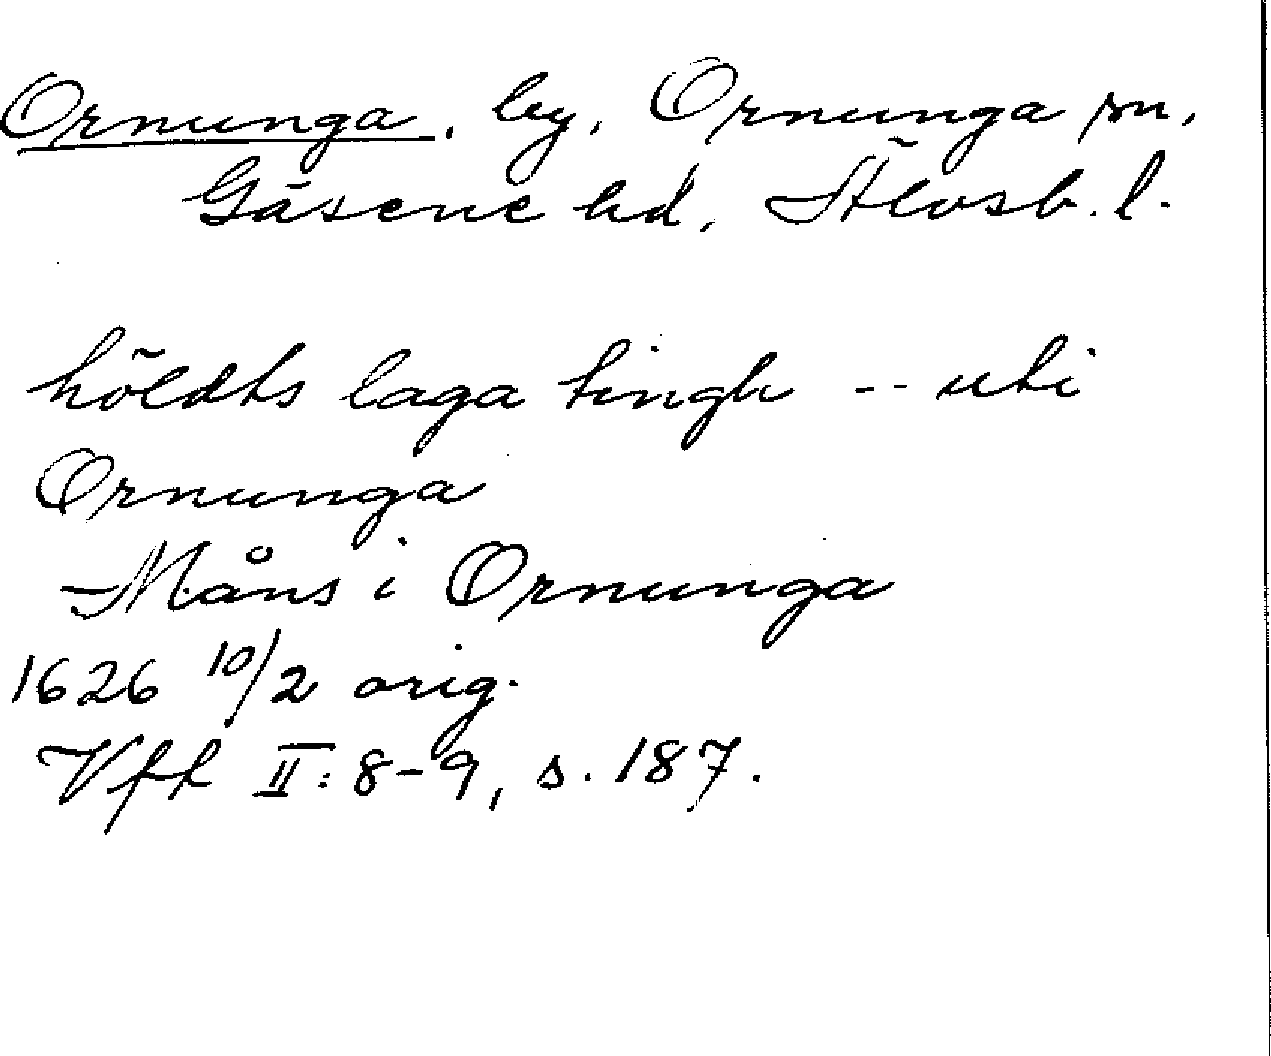 Ornunga, by, Ornunga sn,
Gäsene hd, Älvsb. l.
höldts laga tingh -- uti
Ornunga
Måns i Ornunga
1626 10/2 orig.
Vfh II: 8-9, s. 187.